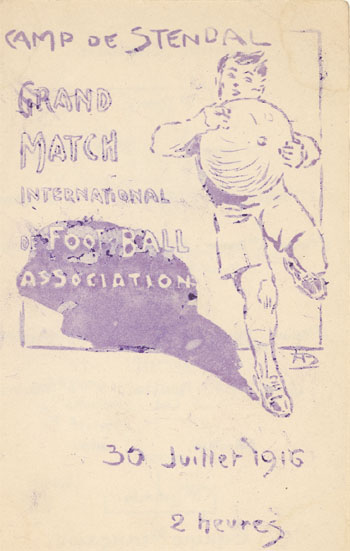 CAMP DE STENDAL
GRAND
MATCH
INTERNATIONAL
DE FOOT BALL
ASSOCIATION
30 Juillet 1916
2 heures